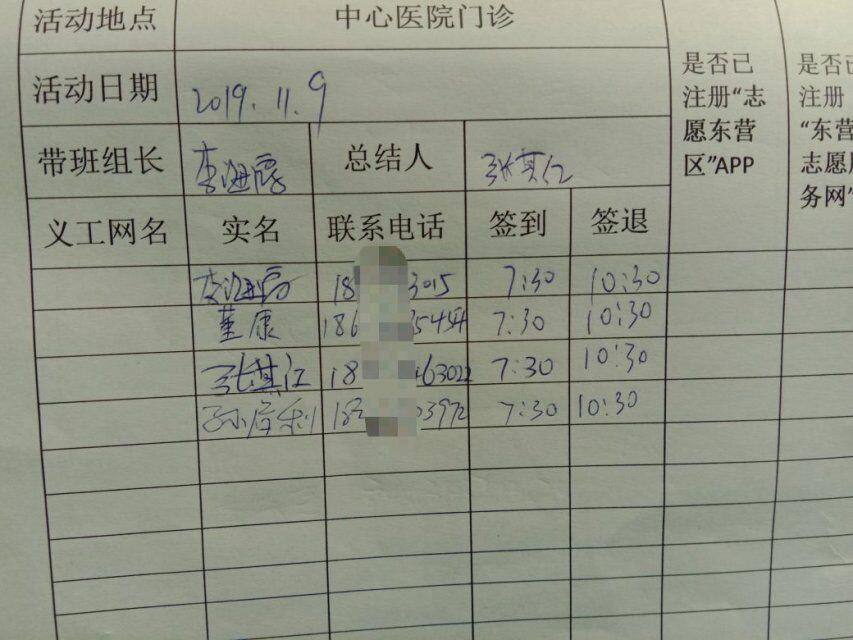 活动地点 中心医院门诊
活动日期 2019.11.9
是否已
注册“志
愿东营
区”APP
是否已
注册
“东营
志愿服
务网”
带班组长 李海霞 总结人
义工网名 实名 联系电话 签到 签退
李海霞 18 3015 7:30 10:30
董康 186 35454 7:30 10:30
18 463022 7:30 10:30
18 03972 7:30 10:30